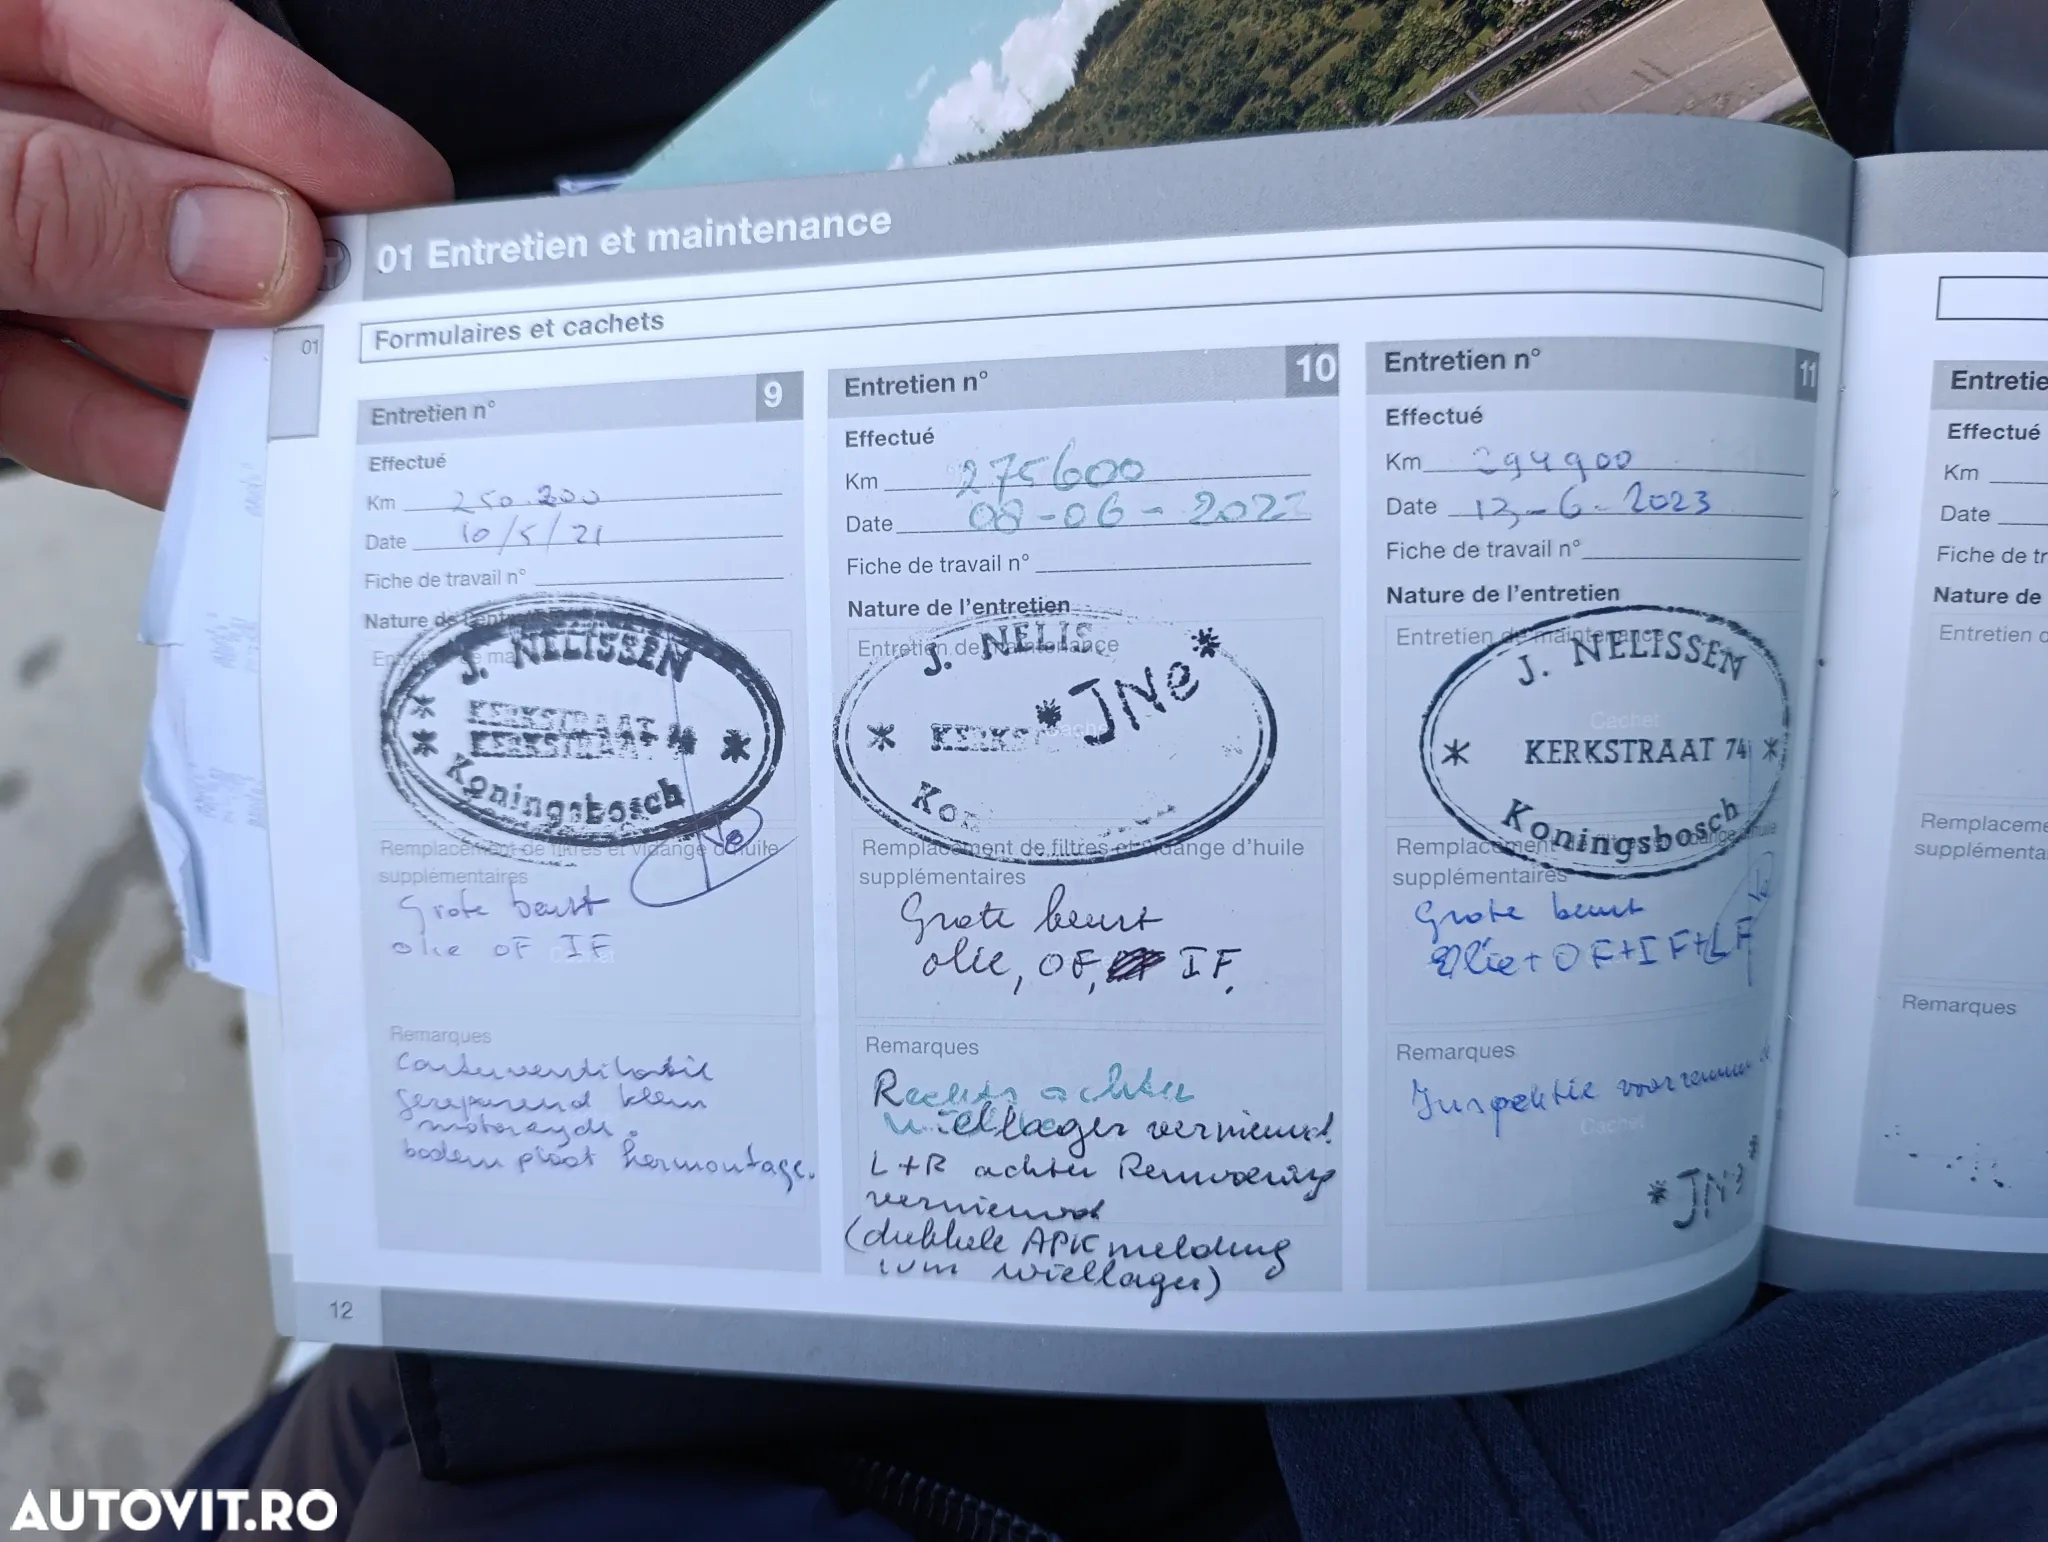 01 Entretien et maintenance
01
Formulaires et cachets
Entretien n° 9
Effectué
Km 250.200
Date 10/5/21
Fiche de travail n°
Nature de l'entretien
J. NELISSEN
KERKSTRAAT 74
KERKSTRAAT
Koningsbosch
Remplacement de filtres et vidange d'huile
supplémentaires
Grote beurt
olie OF IF
Cachet
Remarques
Carterventilatie
gerepareerd klem
bodem plaat hermontage.
12
Entretien n° 10
Effectué
Km 275600
Date 08-06-202
Fiche de travail n°
Nature de l'entretien
Entretien de maintenance
J. NELIS
*JNe*
* KERKS
Cachet
Ko
Remplacement de filtres et vidange d'huile
supplémentaires
Grote beurt
olie, OF, IF.
Remarques
Rechts achter
wiellager vernieuwd.
L+R achter Remvoering
vernieuwd
(dubbele APK melding
ivm wiellager)
Entretien n° 11
Effectué
Km 294900
Date 13-6-2023
Fiche de travail n°
Nature de l'entretien
Entretien de maintenance
J. NELISSEN
Cachet
* KERKSTRAAT 74 *
Koningsbosch
Remplacement de filtres et vidange d'huile
supplémentaires
Grote beurt
Olie+OF+IF+LF
Remarques
Inspektie
Cachet
*JN
Entretie
Effectué
Km
Date
Fiche de tr
Nature de
Entretien d
Remplaceme
supplémenta
Remarques
AUTOVIT.RO